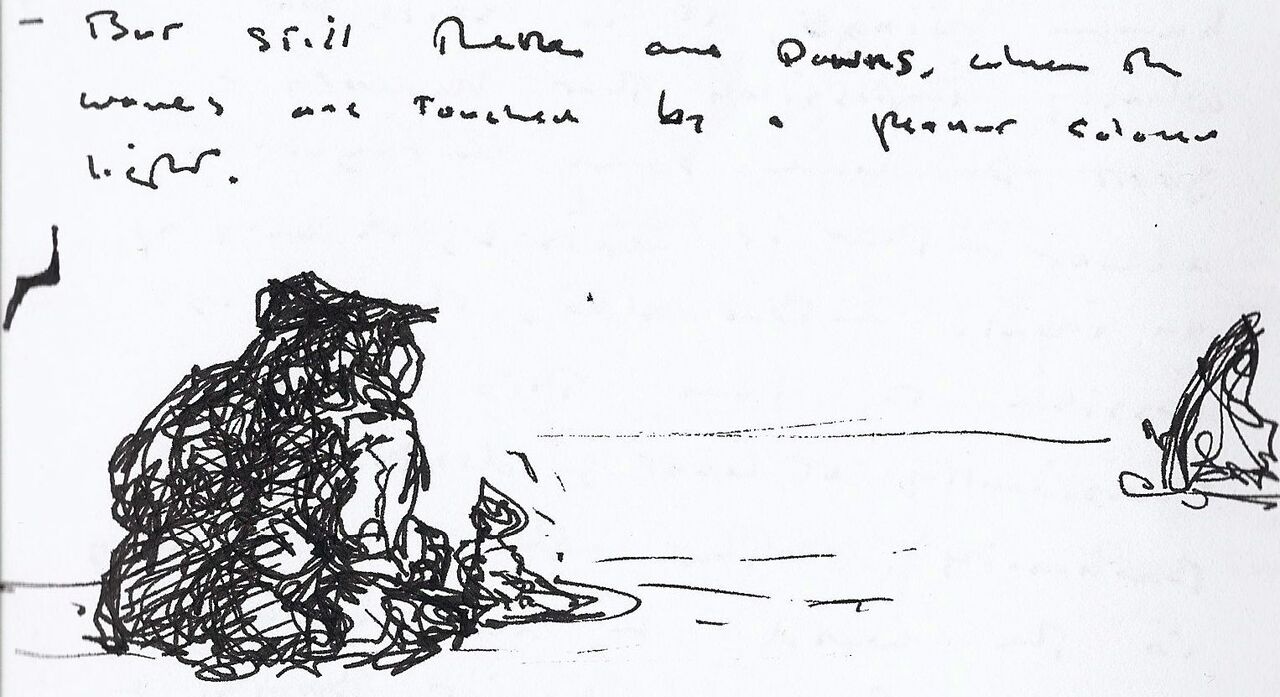 - But still there are Dawns, when the
waves are touched by a peanut colour
light.